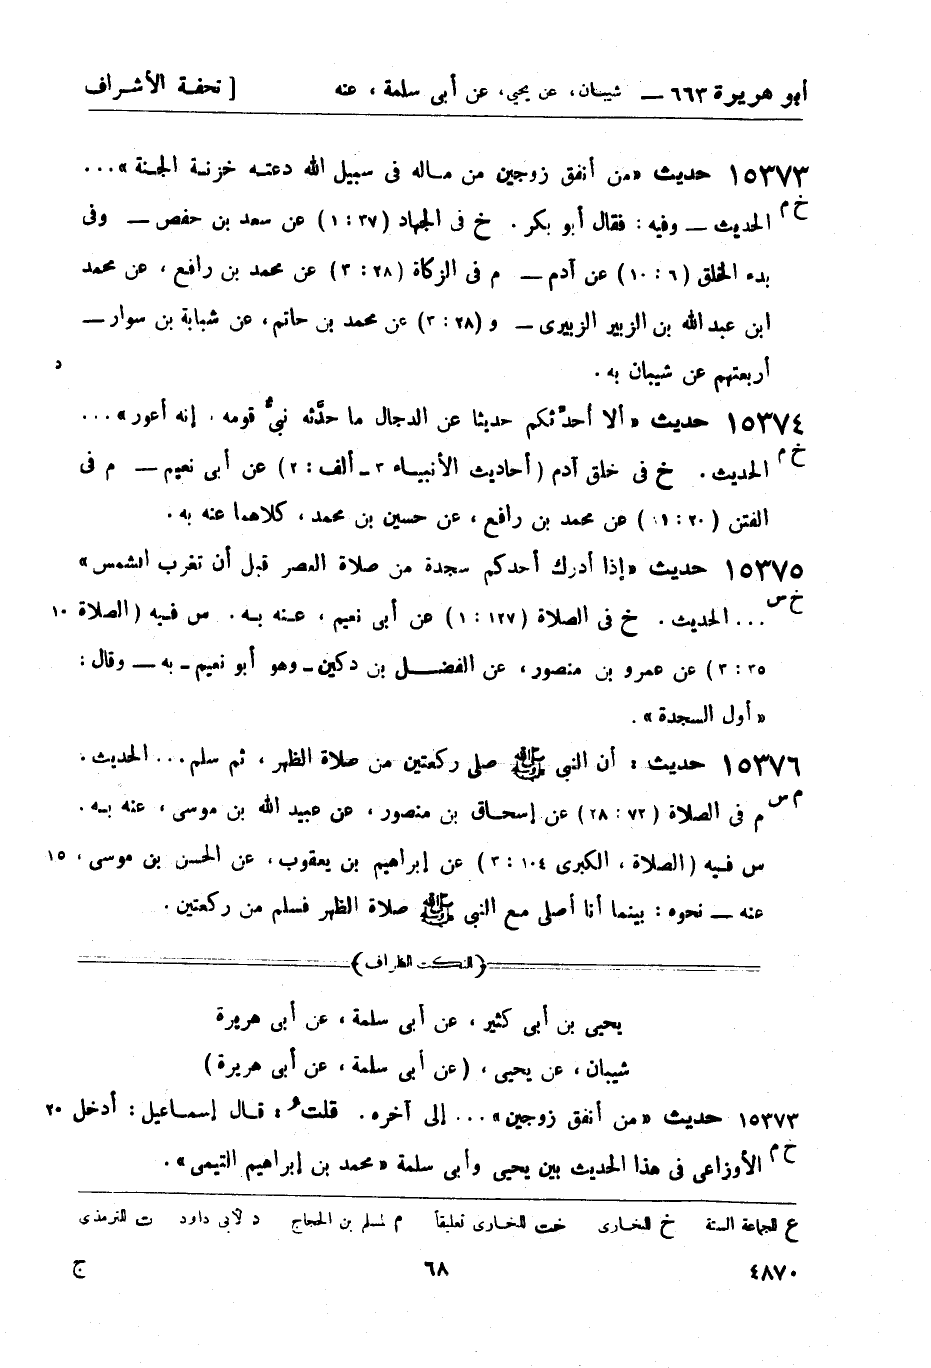 أبو هريرة ٦٦٣ — شيبان، عن يحيى، عن أبى سلمة، عنه [ تحفة الأشراف
١٥٣٧٣ حديث «من أنفق زوجين من ماله فى سبيل الله دعته خزنة الجنة» ...
خ م الحديث — وفيه : فقال أبو بكر . خ فى الجهاد (٣٧ : ١) عن سعد بن حفص — وفى
بدء الخلق (٦ : ١٠) عن آدم — م فى الزكاة (٢٨ : ٣) عن محمد بن رافع ، عن محمد
ابن عبد الله بن الزبير الزبيرى — و (٢٨ : ٣) عن محمد بن حاتم، عن شبابة بن سوار —
أربعتهم عن شيبان به . د
١٥٣٧٤ حديث «ألا أحدّثكم حديثا عن الدجال ما حدَّثه نبيٌّ قومه . إنه أعور» ...
خ م الحديث . خ فى خلق آدم (أحاديث الأنبياء ٣ - ألف : ٢) عن أبى نعيم — م فى
الفتن (٢٠ : ١٠) عن محمد بن رافع ، عن حسين بن محمد ، كلاهما عنه به .
١٥٣٧٥ حديث «إذا أدرك أحدكم سجدة من صلاة العصر قبل أن تغرب الشمس»
خ س ... الحديث . خ فى الصلاة (١٢٧ : ١) عن أبى نعيم ، عنه به . س فيه (الصلاة ١٠
٣٥ : ٣) عن عمرو بن منصور ، عن الفضل بن دكين - وهو أبو نعيم - به — وقال :
«أول السجدة» .
١٥٣٧٦ حديث : أن النبى ﷺ صلى ركعتين من صلاة الظهر ، ثم سلم ... الحديث .
م س م فى الصلاة (٧٢ : ٢٨) عن إسحاق بن منصور ، عن عبيد الله بن موسى ، عنه به .
س فيه (الصلاة ، الكبرى ١٠٤ : ٣) عن إبراهيم بن يعقوب ، عن الحسن بن موسى ، ١٥
عنه — نحوه : بينما أنا أصلى مع النبى ﷺ صلاة الظهر فسلم من ركعتين .
(النكت الظراف)
يحيى بن أبى كثير ، عن أبى سلمة ، عن أبى هريرة
شيبان ، عن يحيى ، (عن أبى سلمة ، عن أبى هريرة)
١٥٣٧٣ حديث «من أنفق زوجين» ... إلى آخره . قلت : قال إسماعيل : أدخل ٢٠
خ م الأوزاعى فى هذا الحديث بين يحيى وأبى سلمة «محمد بن إبراهيم التيمى» .
ع للجماعة الستة خ للبخارى خت للبخارى تعليقاً م لمسلم بن الحجاج د لأبى داود ت للترمذى
٤٨٧٠ ٦٨ ج